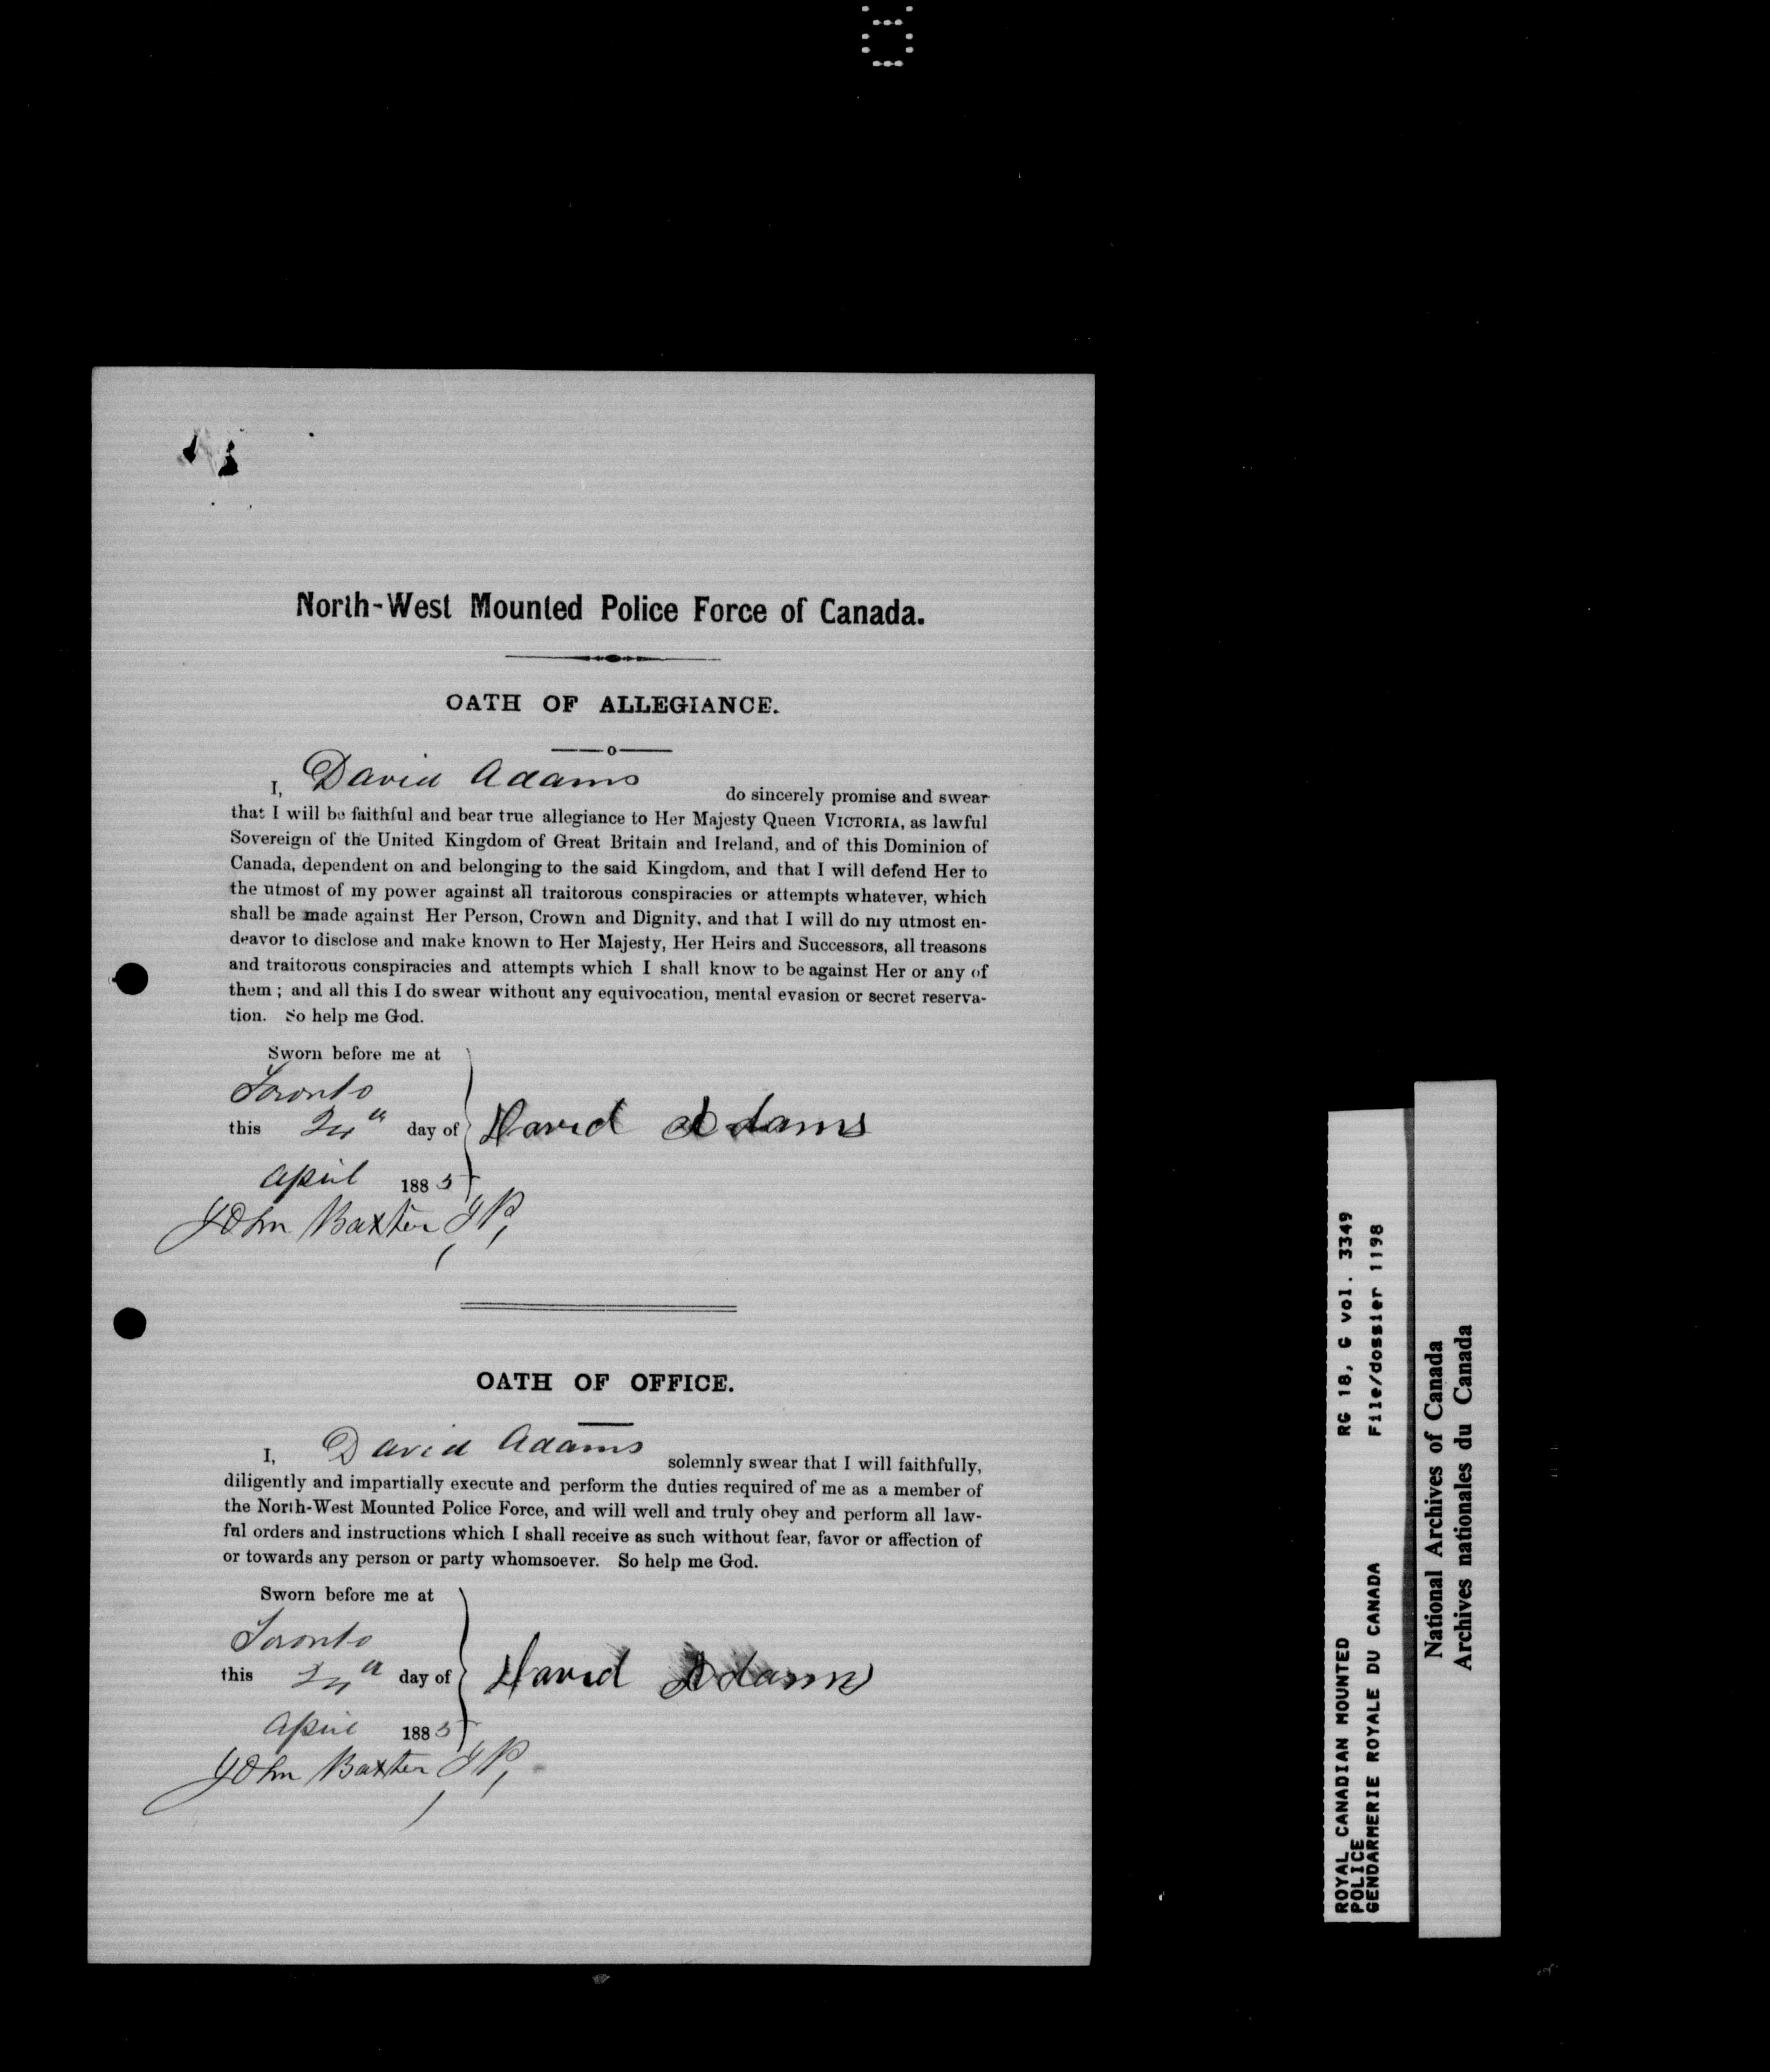 North-West Mounted Police Force of Canada.
OATH OF ALLEGIANCE.
I, David Adams do sincerely promise and swear
that I will be faithful and bear true allegiance to Her Majesty Queen VICTORIA, as lawful
Sovereign of the United Kingdom of Great Britain and Ireland, and of this Dominion of
Canada, dependent on and belonging to the said Kingdom, and that I will defend Her to
the utmost of my power against all traitorous conspiracies or attempts whatever, which
shall be made against Her Person, Crown and Dignity, and that I will do my utmost en-
deavor to disclose and make known to Her Majesty, Her Heirs and Successors, all treasons
and traitorous conspiracies and attempts which I shall know to be against Her or any of
them ; and all this I do swear without any equivocation, mental evasion or secret reserva-
tion. So help me God.
Sworn before me at
Toronto
this 24th day of David Adams
April 1885
John Baxter, JP,
OATH OF OFFICE.
I, David Adams solemnly swear that I will faithfully,
diligently and impartially execute and perform the duties required of me as a member of
the North-West Mounted Police Force, and will well and truly obey and perform all law-
ful orders and instructions which I shall receive as such without fear, favor or affection of
or towards any person or party whomsoever. So help me God.
Sworn before me at
Toronto
this 24th day of David Adams
April 1885
John Baxter, JP,
ROYAL CANADIAN MOUNTED RG 18, G vol. 3349
POLICE
GENDARMERIE ROYALE DU CANADA File/dossier 1198
National Archives of Canada
Archives nationales du Canada